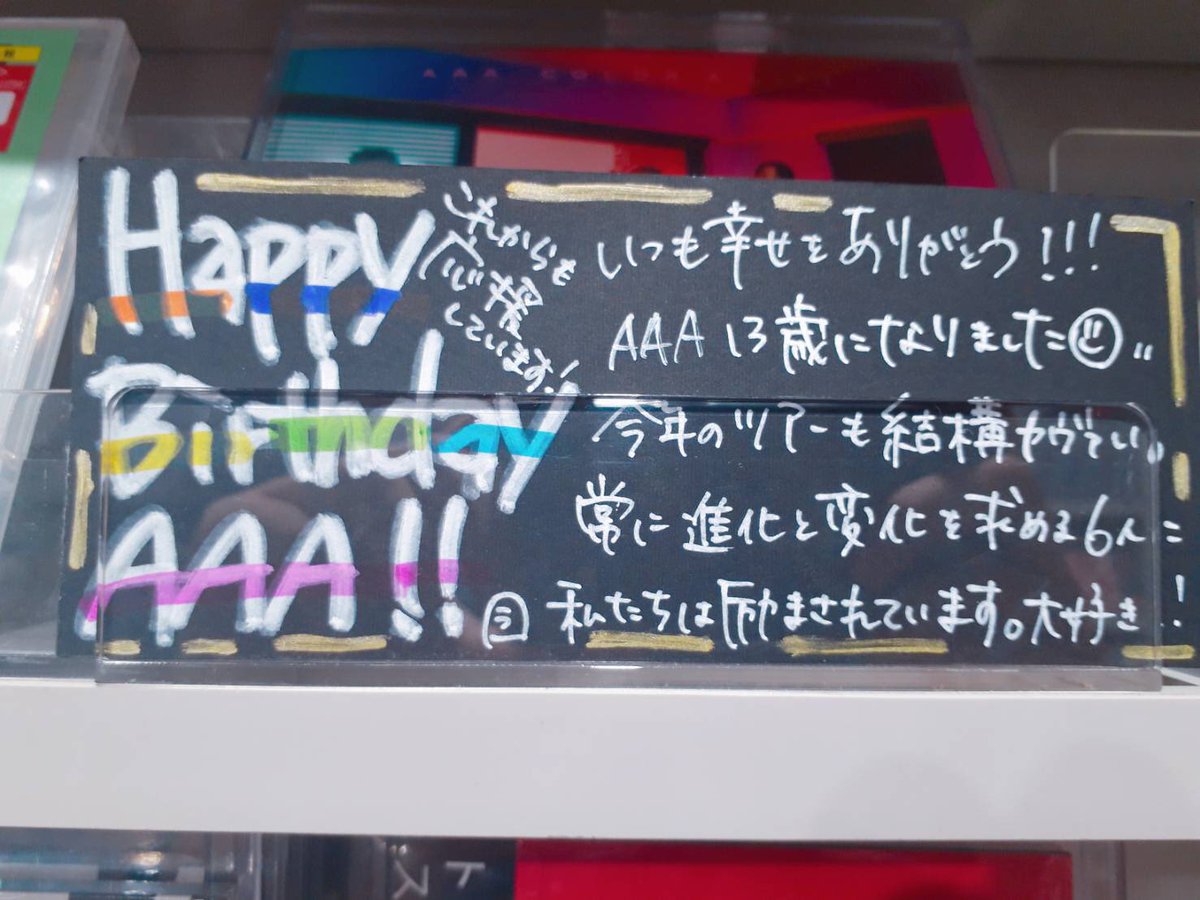 AAA COLOR
Happy
Birthday
AAA!!
これからも
応援
しています!
いつも幸せをありがとう!!!
AAA 13歳になりました
今年のツアーも結構ヤヴぁい。
常に進化と変化を求める6人に
私たちは励まされています。大好き!